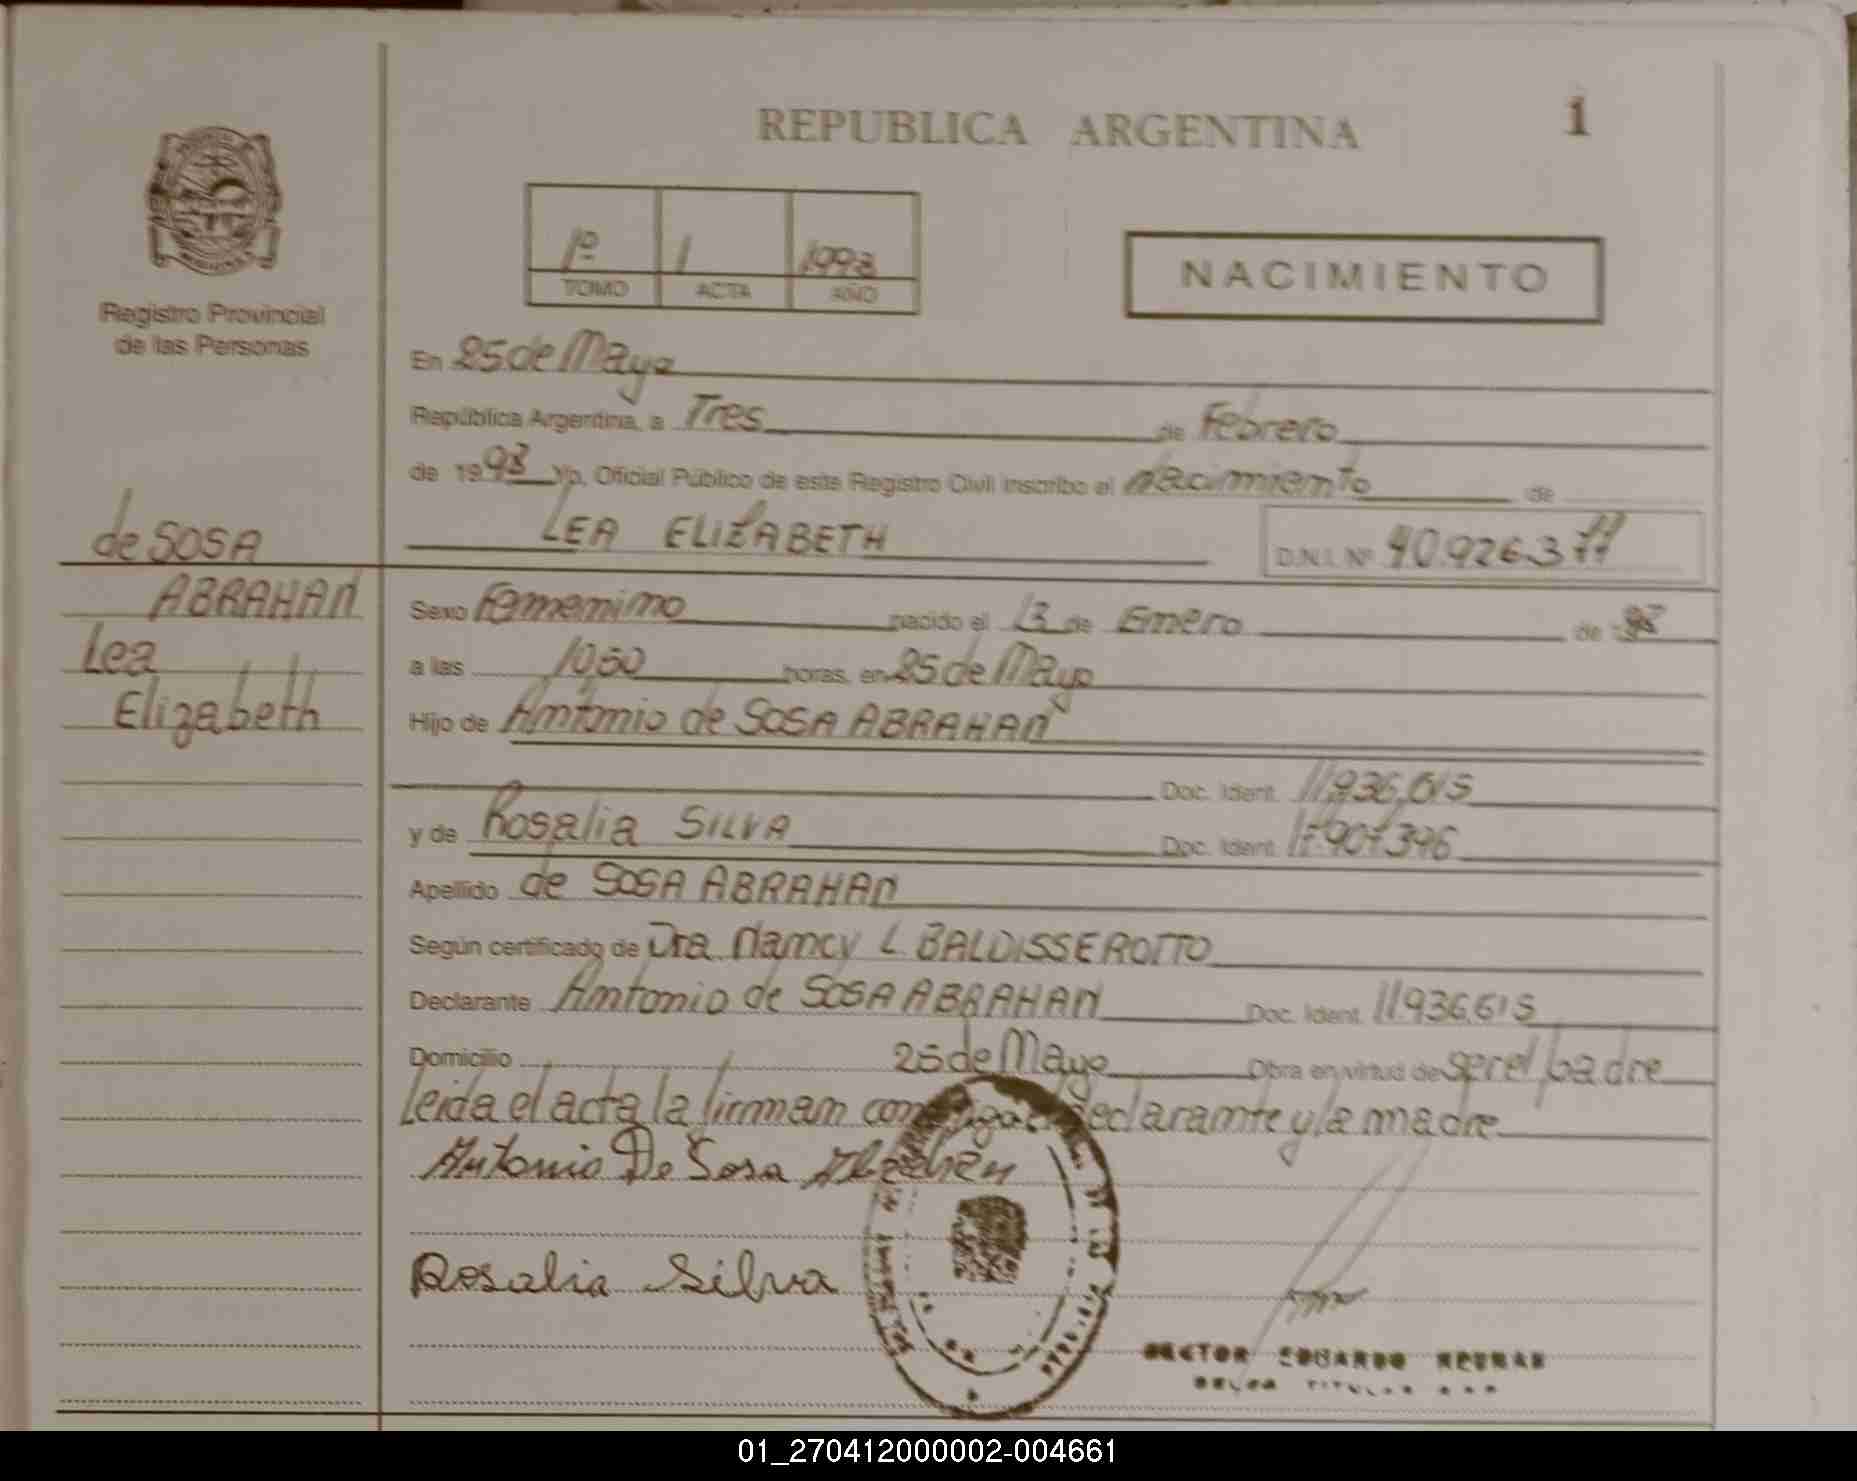 REPUBLICA ARGENTINA
1
1º 1 1998
TOMO ACTA AÑO
NACIMIENTO
Registro Provincial
de las Personas
En 25 de Mayo
República Argentina, a Tres de Febrero
de 1998 Yo, Oficial Público de este Registro Civil inscribo el nacimiento de
de SOSA
ABRAHAN
Lea
Elizabeth
LEA ELIZABETH
D.N.I. Nº 40.926.377
Sexo Femenino nacido el 13 de Enero de 98
a las 1050 horas, en 25 de Mayo
Hijo de Antonio de SOSA ABRAHAN
Doc. Ident. 11.936.615
y de Rosalia SILVA Doc. Ident. 17.907.396
Apellido de SOSA ABRAHAN
Según certificado de Dra. Nancy L. BALDISSEROTTO
Declarante Antonio de SOSA ABRAHAN Doc. Ident. 11.936.615
Domicilio 25 de Mayo Obra en virtud de ser el padre
Leida el acta la firman conmigo el declarante y la madre
Antonio De Sosa Abrahan
Rosalia Silva
HECTOR EDUARDO
TITULAR
01_270412000002-004661